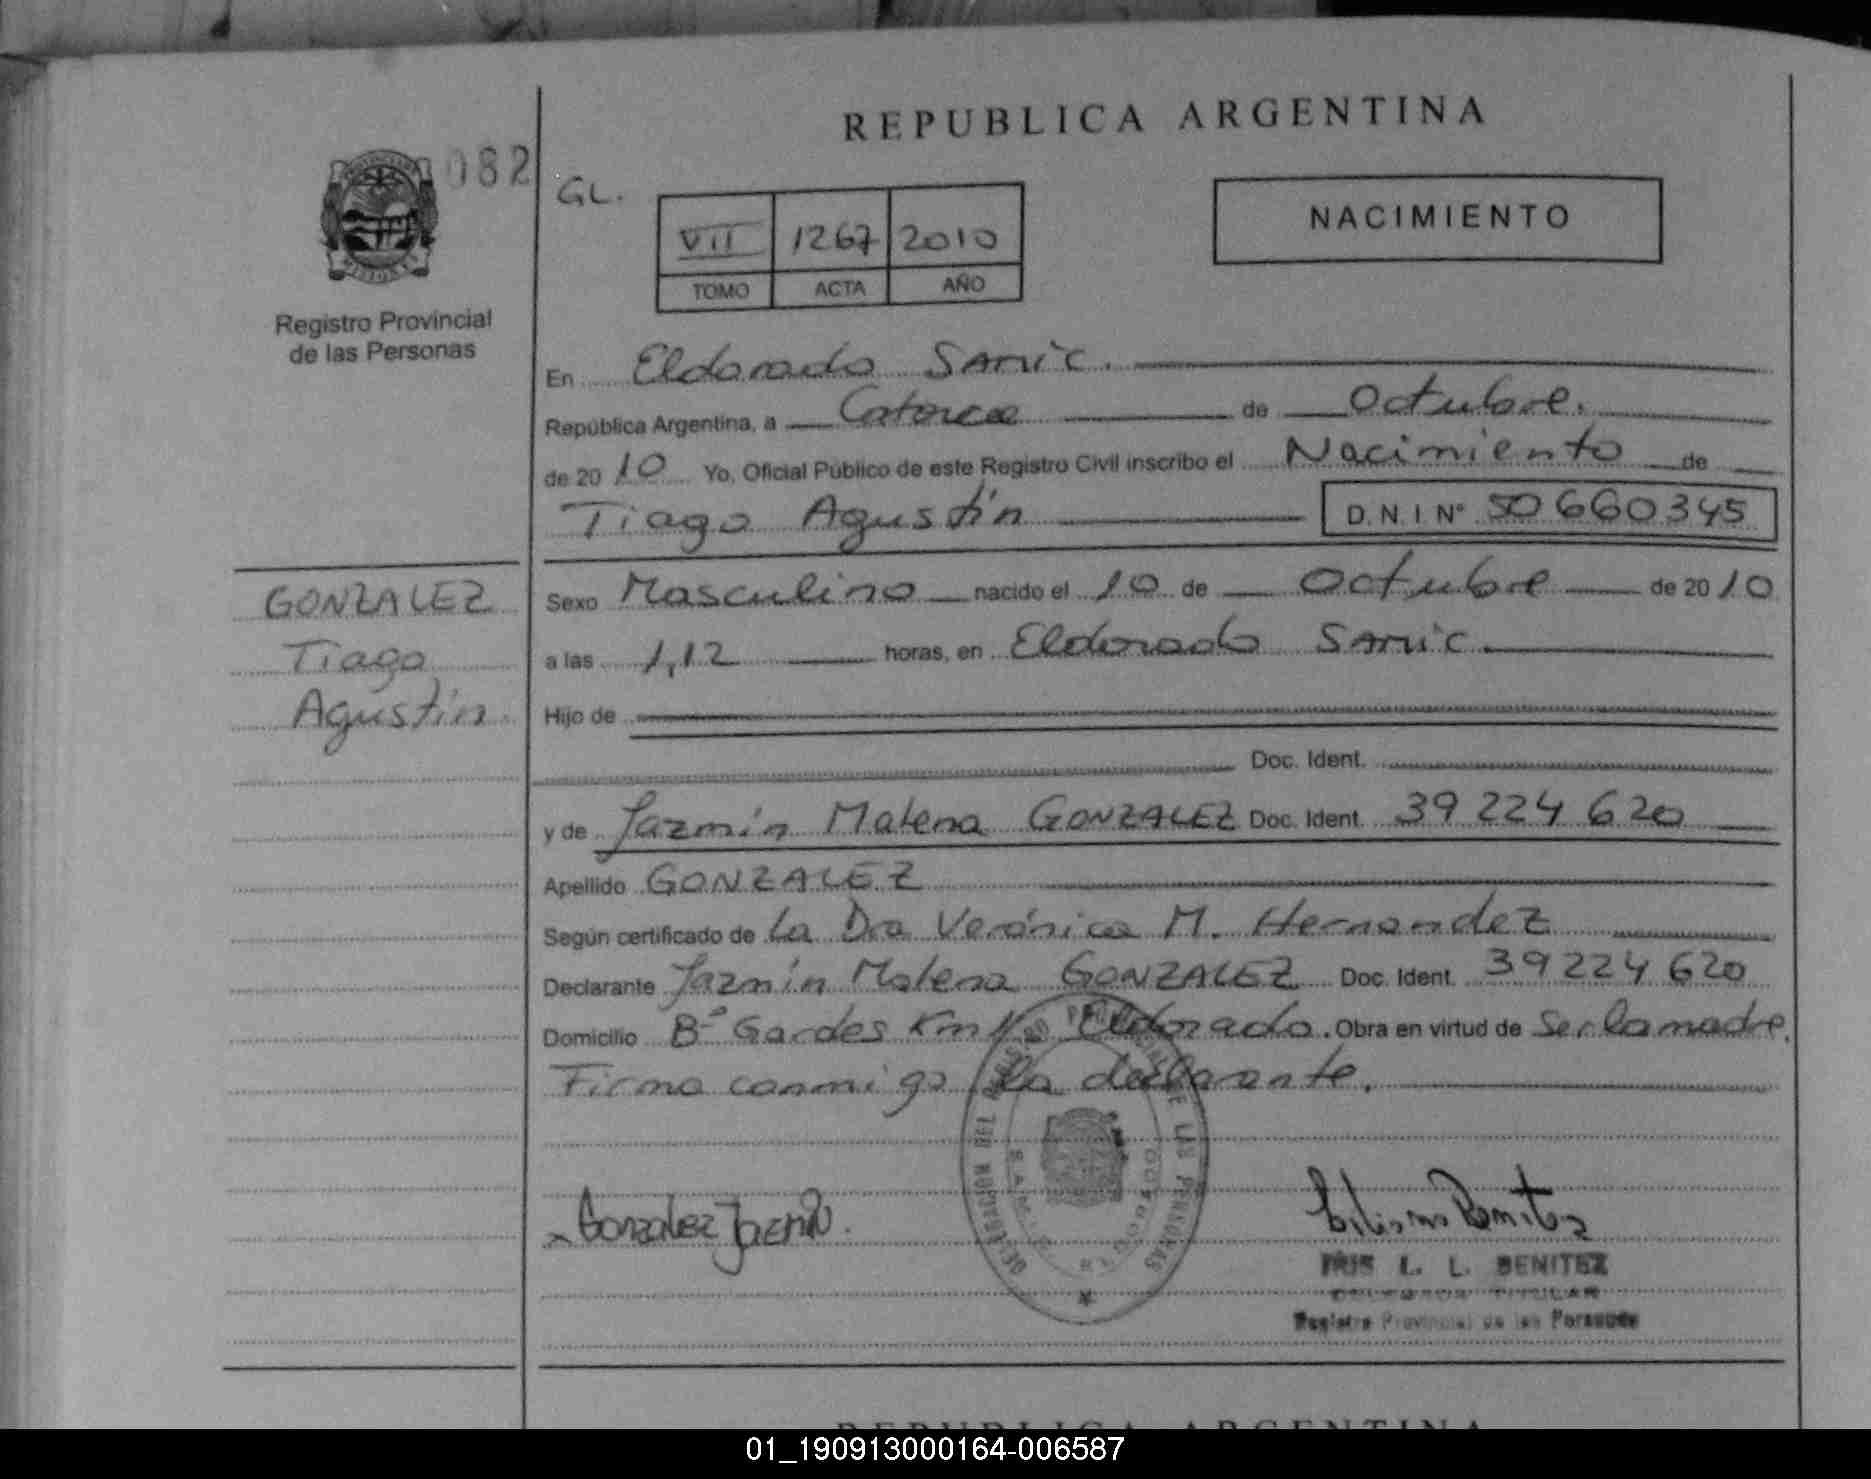 REPUBLICA ARGENTINA
082
GL.
NACIMIENTO
VII 1267 2010
TOMO ACTA AÑO
Registro Provincial
de las Personas
En Eldorado Samic.
República Argentina, a Catorce de Octubre.
de 2010 Yo, Oficial Público de este Registro Civil inscribo el Nacimiento de
Tiago Agustín D.N.I Nº 50660345
GONZALEZ
Tiago
Agustín
Sexo Masculino nacido el 10 de Octubre de 2010
a las 1,12 horas, en Eldorado Samic
Hijo de
Doc. Ident.
y de Jazmín Malena GONZALEZ Doc. Ident. 39 224 620
Apellido GONZALEZ
Según certificado de La Dra Verónica M. Hernandez
Declarante Jazmín Malena GONZALEZ Doc. Ident. 39224 620
Domicilio Bº Gardes Km Eldorado. Obra en virtud de Ser la madre.
Firma conmigo la declarante.
x Gonzalez Jazmin.
BENITEZ
L. L. BENITEZ
Registro Provincial de las Personas
REPUBLICA ARGENTINA
01_190913000164-006587